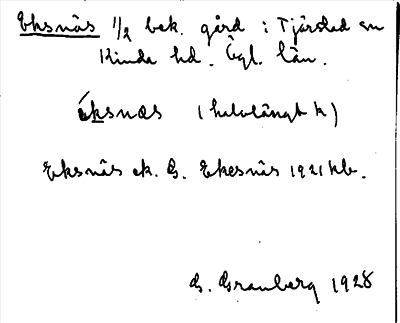 Eksnäs 1/2 bek. gård i Tjärstad sn
Kinda hd. Ögl. län.
éksnæs (halvlångt k)
Eksnäs ek. G. Ekesnäs 1921 kb.
G. Granberg 1928